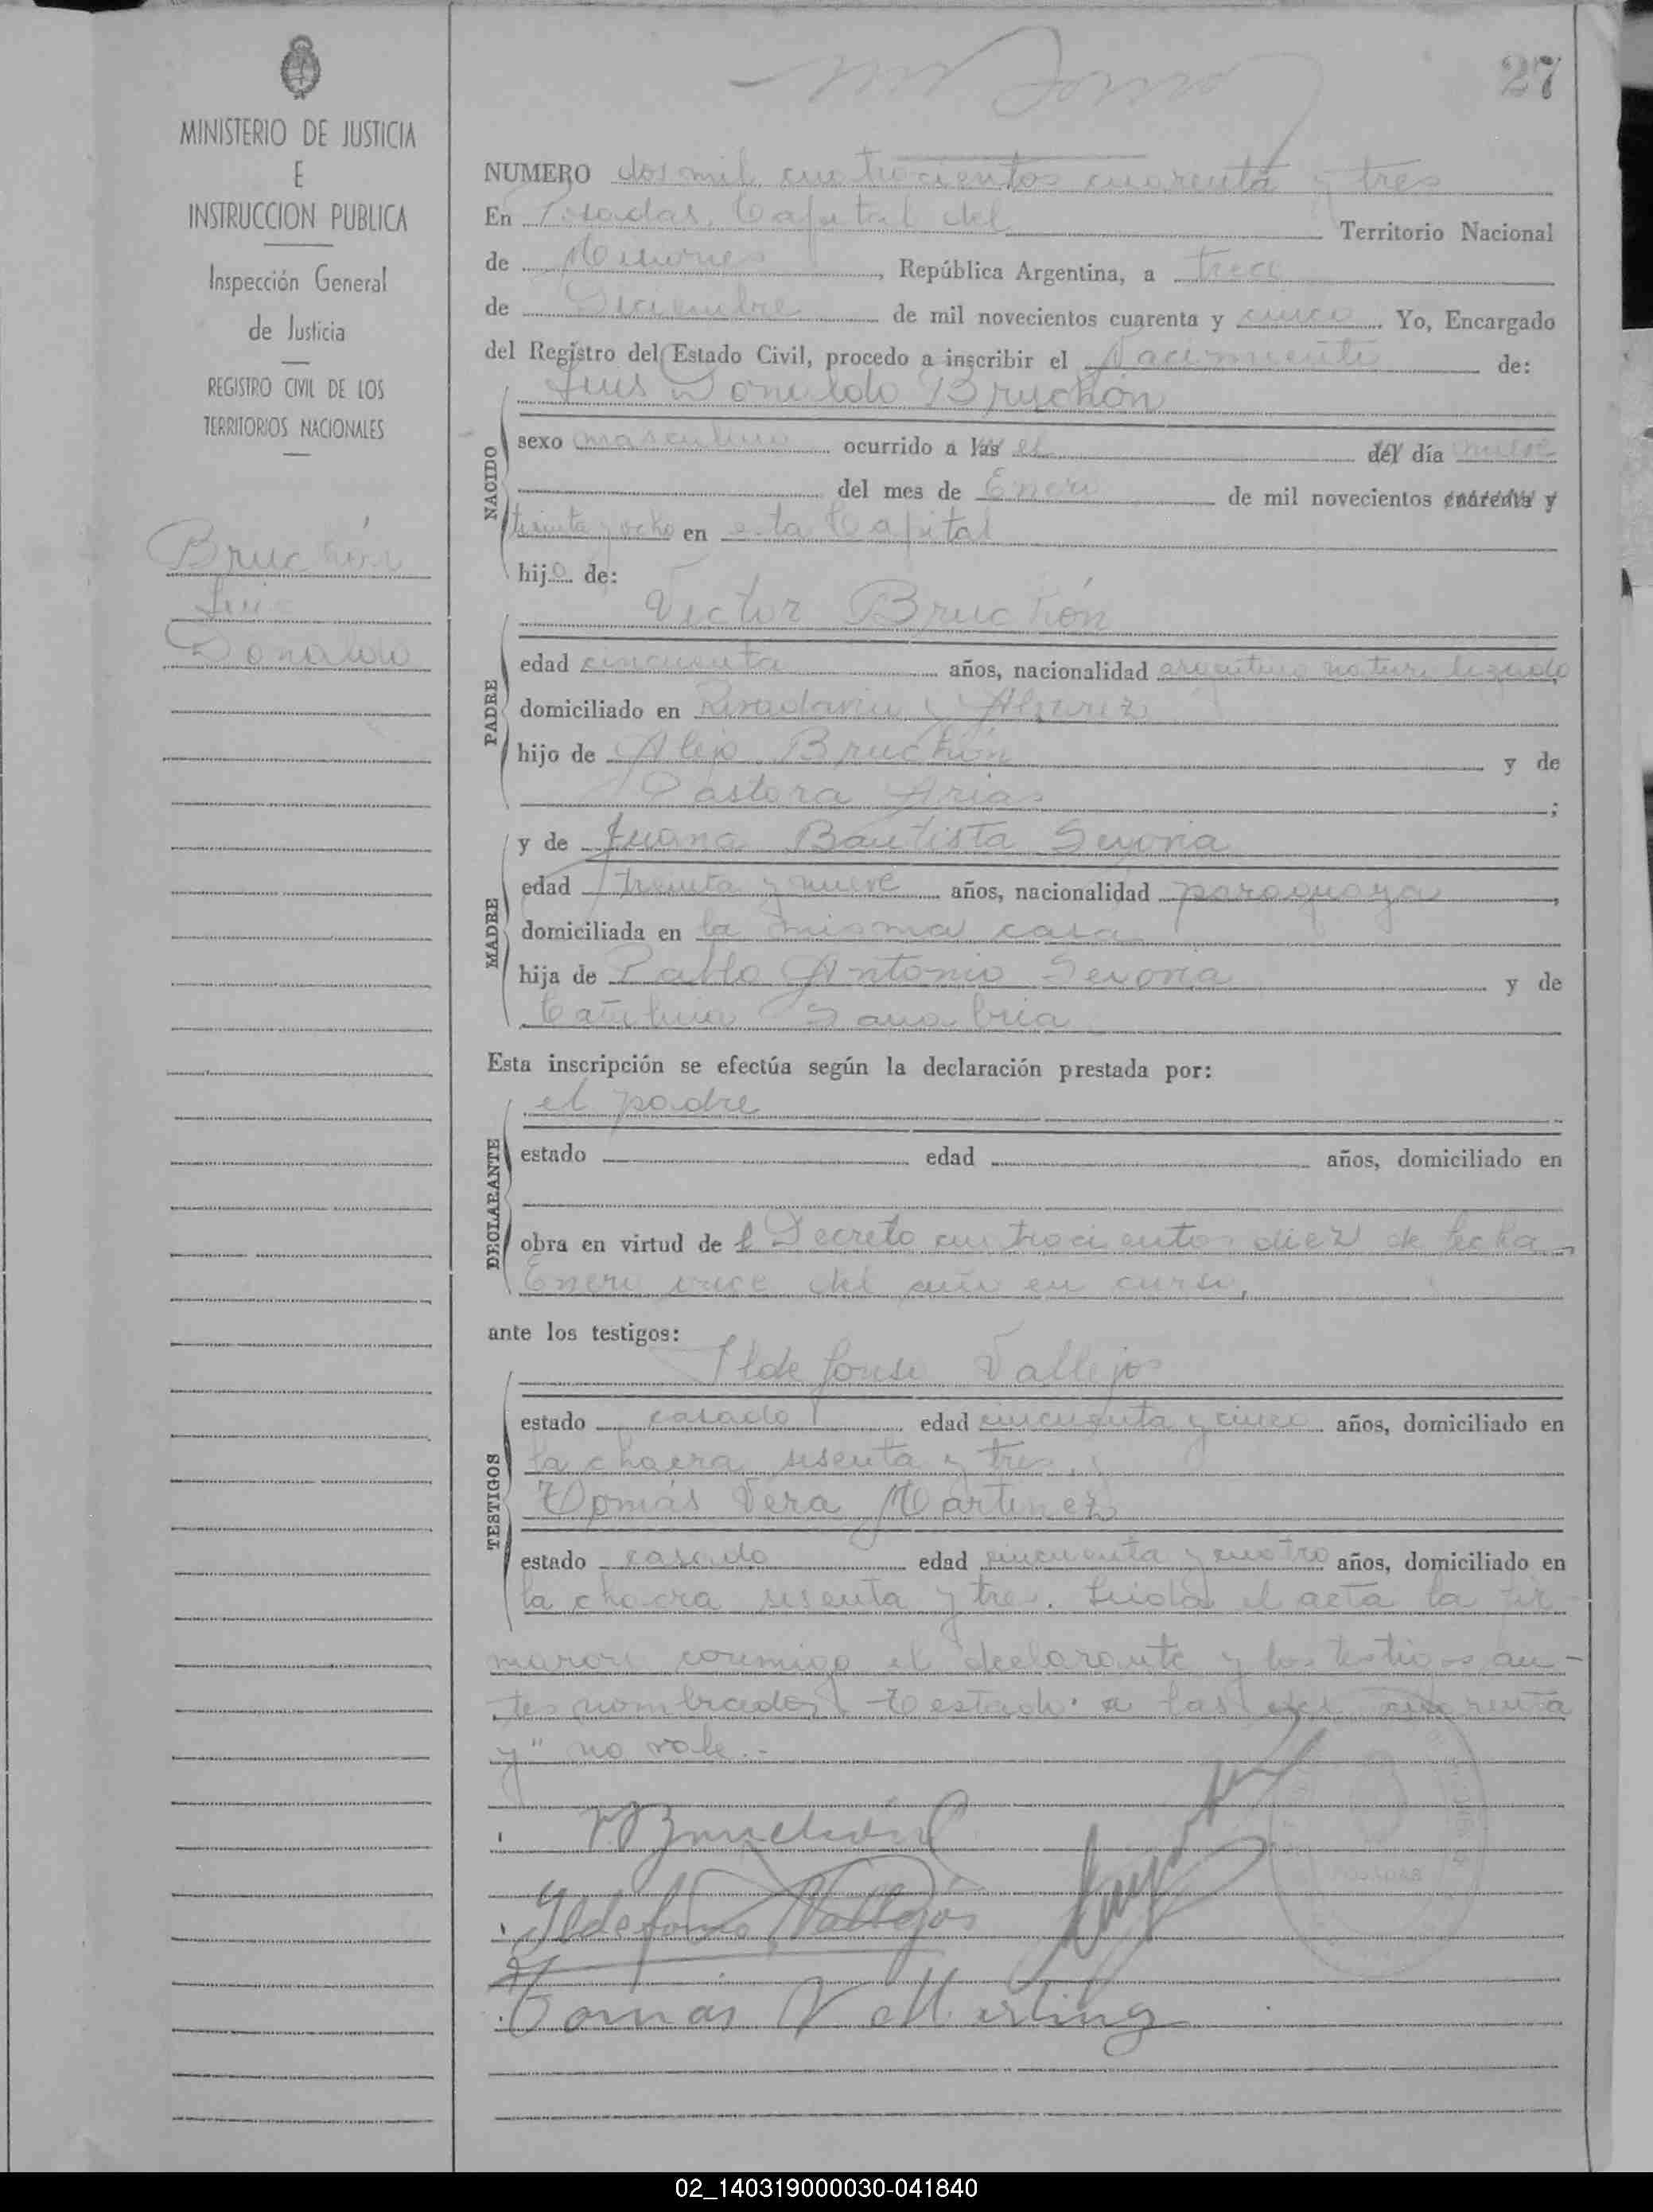 27
MINISTERIO DE JUSTICIA
E
INSTRUCCION PUBLICA
Inspección General
de Justicia
REGISTRO CIVIL DE LOS
TERRITORIOS NACIONALES
Bruchón
Luis
Donaldo
NUMERO dos mil cuatrocientos cuarenta y tres
En Posadas, Capital del Territorio Nacional
de Misiones, República Argentina, a trece
de Diciembre de mil novecientos cuarenta y cinco Yo, Encargado
del Registro del Estado Civil, procedo a inscribir el Nacimiento de:
Luis Donaldo Bruchón
NACIDO
sexo masculino ocurrido a las el del día nueve
del mes de Enero de mil novecientos cuarenta y
treinta y ocho en esta Capital
hijo de:
Victor Bruchón
PADRE
edad cincuenta años, nacionalidad argentino naturalizado
domiciliado en Rivadavia y Alvarez
hijo de Alejo Bruchón y de
Pastora Arias;
MADRE
y de Juana Bautista
edad treinta y nueve años, nacionalidad paraguaya,
domiciliada en la misma casa
hija de Pablo Antonio y de
Sanabria
Esta inscripción se efectúa según la declaración prestada por:
el padre
DECLARANTE
estado edad años, domiciliado en
obra en virtud del Decreto cuatrocientos diez de fecha
Enero once del año en curso,
ante los testigos:
Ildefonso Vallejos
TESTIGOS
estado casado edad cincuenta y cinco años, domiciliado en
la chacra sesenta y tres, y
Tomás Vera Martinez
estado casado edad cincuenta y cuatro años, domiciliado en
la chacra sesenta y tres. Leida el acta la fir
maron conmigo el declarante y los testigos an-
tes nombrados. Testado: a las del cuarenta
y" no vale.-
V Bruchón
Ildefonso Vallejos
Tomas V Martinez
POSADAS
02_140319000030-041840